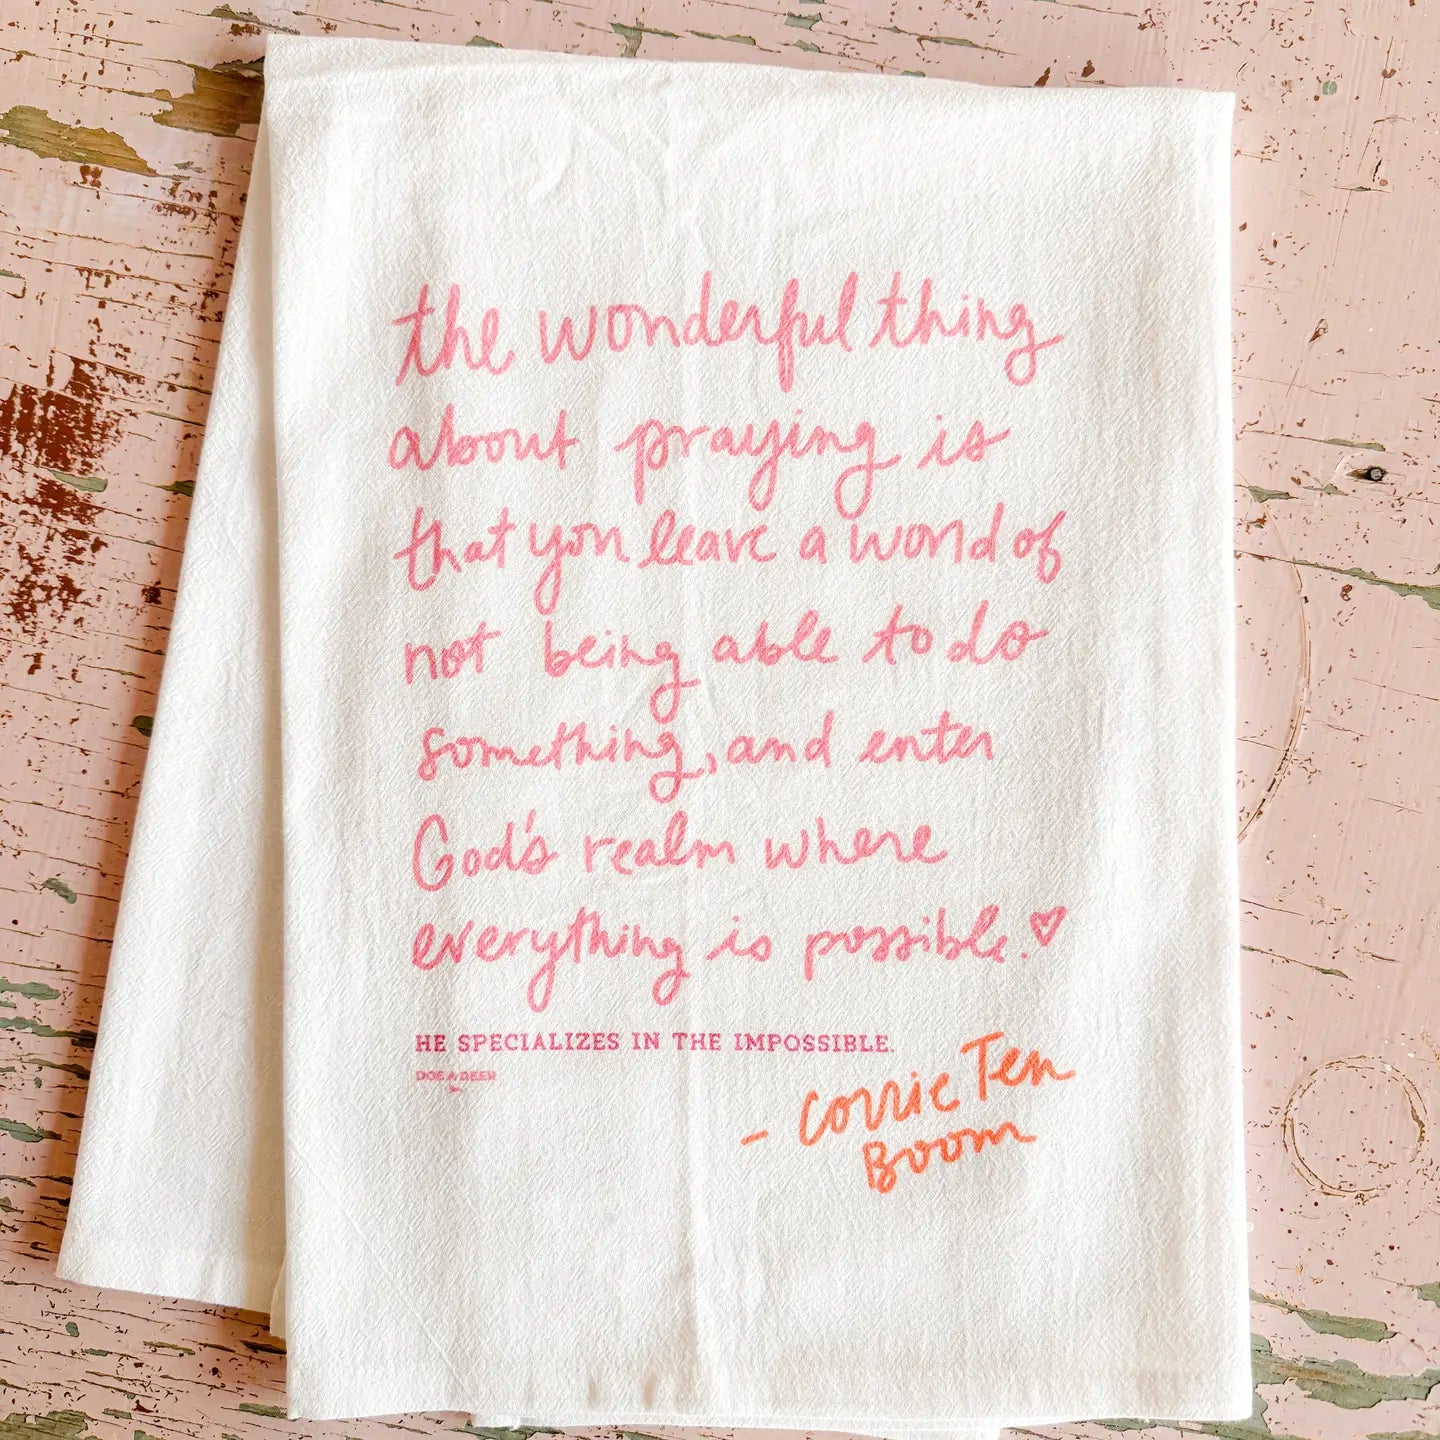 the wonderful thing
about praying is
that you leave a world of
not being able to do
something, and enter
God's realm where
everything is possible.♡
HE SPECIALIZES IN THE IMPOSSIBLE.
DOE A DEER
- Corrie Ten
Boom